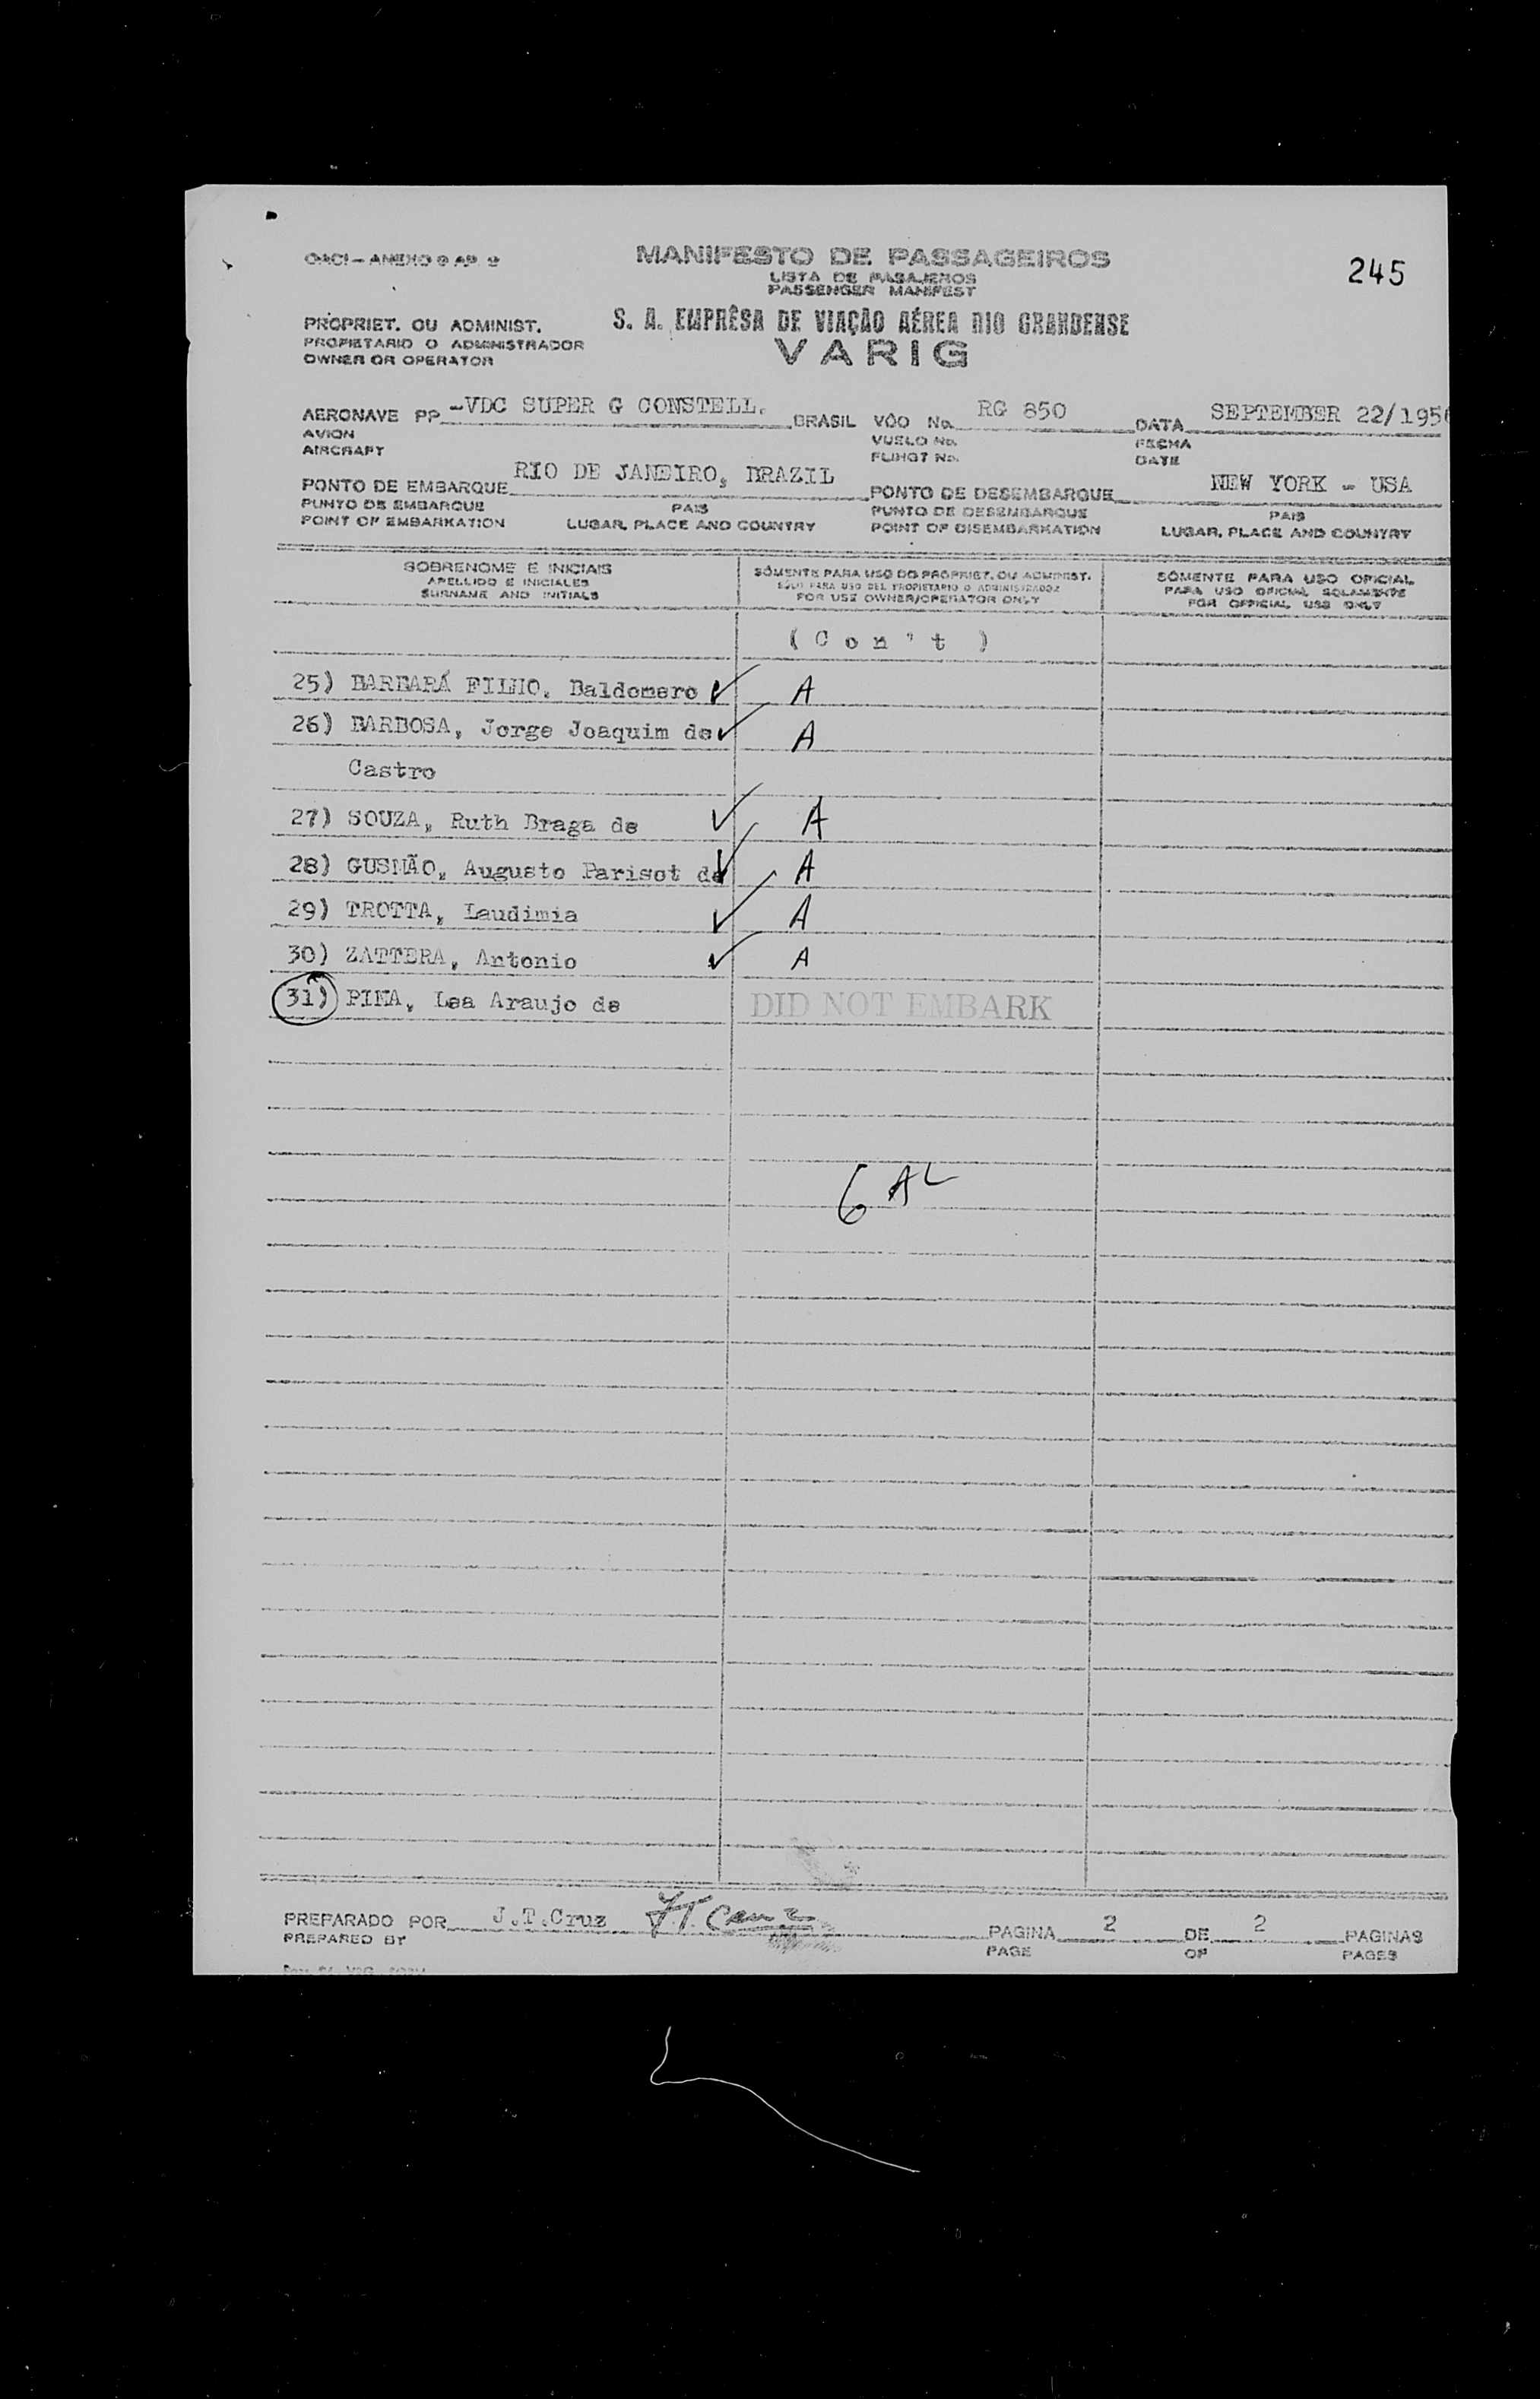 OACI - ANEXO 9 AP. 2
MANIFESTO DE PASSAGEIROS
LISTA DE PASAJEROS
PASSENGER MANIFEST
245
PROPRIET. OU ADMINIST.
PROPIETARIO O ADMINISTRADOR
OWNER OR OPERATOR
S. A. EMPRÊSA DE VIAÇÃO AÉREA RIO GRANDENSE
VARIG
AERONAVE PP -VDC SUPER G CONSTELL. BRASIL VÔO No. RG 850 DATA SEPTEMBER 22/195
AVION VUELO No. FECHA
AIRCRAFT FLIHGT No. DATE
PONTO DE EMBARQUE RIO DE JANEIRO, BRAZIL PONTO DE DESEMBARQUE NEW YORK - USA
PUNTO DE EMBARQUE PAIS PUNTO DE DESEMBARQUE PAIS
POINT OF EMBARKATION LUGAR, PLACE AND COUNTRY POINT OF DISEMBARKATION LUGAR, PLACE AND COUNTRY
SOBRENOME E INICIAIS SÒMENTE PARA USO DO PROPRIET. OU ADMINIST. SÒMENTE PARA USO OFICIAL
APELLIDO E INICIALES SÓLO PARA USO DEL PROPIETARIO O ADMINISTRADOR PARA USO OFICIAL SOLAMENTE
SURNAME AND INITIALS FOR USE OWNER/OPERATOR ONLY FOR OFFICIAL USE ONLY
( C o n ' t )
25) BARBARÁ FILHO, Baldomero A
26) BARBOSA, Jorge Joaquim de A
Castro
27) SOUZA, Ruth Braga de A
28) GUSMÃO, Augusto Parisot de A
29) TROTTA, Laudimia A
30) ZATTERA, Antonio A
31) PINA, Lea Araujo de DID NOT EMBARK
6 AL
PREPARADO POR J.T.Cruz J.T. Cruz PAGINA 2 DE 2 PAGINAS
PREPARED BY PAGE OF PAGES